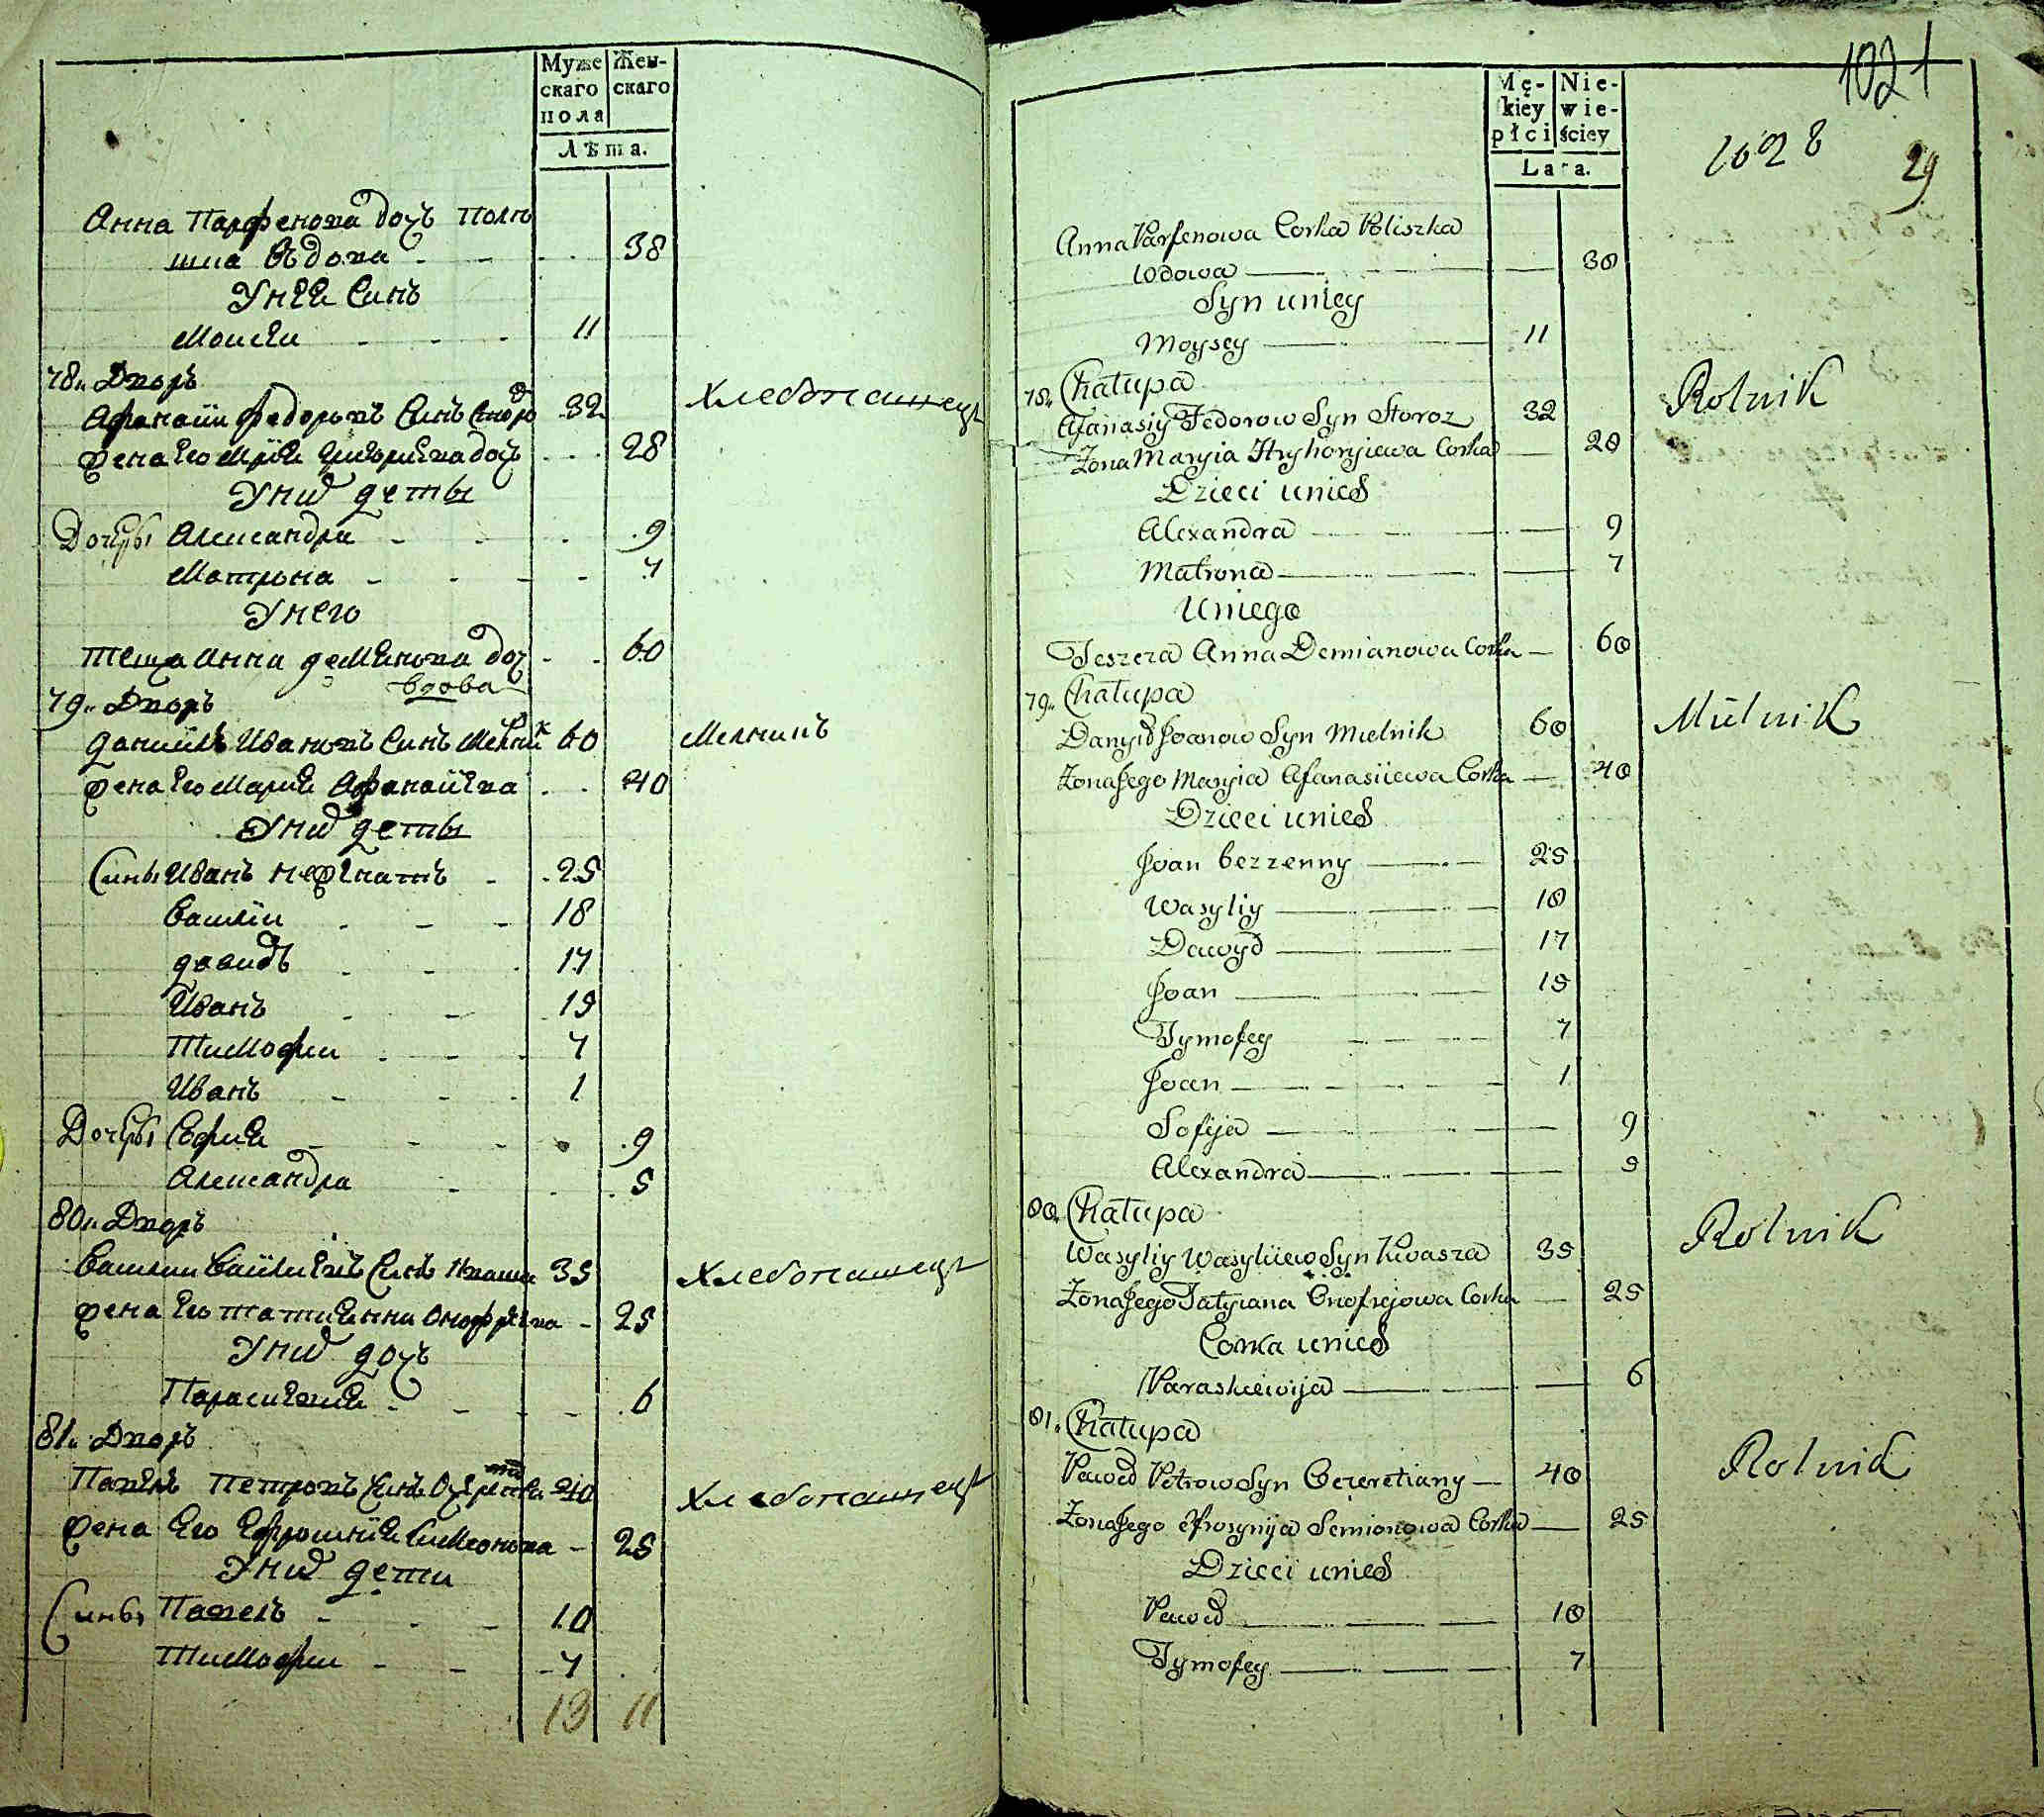 Муже
скаго
пола
Жен-
скаго
Лѣта.
Анна Парфенова дочъ Полѣ
шка вдова 38
У нея синъ
Моисей 11
78. Дворъ
Афанасій Федоровъ синъ Сторо 32 Хлебопашецъ
Жена его Марія Григориева дочъ 28
У нихъ дети
Дочеры Александра 9
Матрона 7
У него
Теща Анна Демянова доч 60
вдова
79. Дворъ
Даниилъ Ивановъ синъ Мелник 60 Мелникъ
Жена его Мария Афанасіева 40
У нихъ дети
Сины Иванъ нежонатъ 25
Василій 18
Давидъ 17
Иванъ 15
Тимофей 7
Иванъ 1
Дочеры София 9
Александра 5
80. Дворъ
Василий Василиевъ синъ Кваша 35 Хлебопашецъ
Жена его Татиянна Онофрѣева 25
У нихъ дочъ
Параскевия 6
81. Дворъ
Павелъ Петровъ синъ 40 Хлебопашецъ
Жена его Ефросинія Симеонова 25
У нихъ дети
Сины Павелъ 10
Тимофей 7
13 11
Mę-
skiey
płci
Nie-
wie-
ściey
Lata.
1021
1028
29
Anna Parfenowa Corka Poliszka
wdowa 38
Syn uniey
Moysey 11
78. Chałupa
Afanasiy Fedorow Syn Storoz 32 Rolnik
Zona Maryia Hryhoryiewa Corka 28
Dzieci unich
Alexandra 9
Matrona 7
Uniego
Teszcza Anna Demianowa Corka 60
79. Chałupa
Danyił Joanow Syn Mielnik 60 Mielnik
Zona Jego Maryia Afanasiiewa Corka 40
Dzieci unich
Joan bezzenny 25
Wasyliy 18
Dawyd 17
Joan 15
Tymofey 7
Joan 1
Sofija 9
Alexandra 5
80. Chałupa
Wasyliy Wasyliiew Syn Kwasza 35 Rolnik
Zona Jego Tatyiana Onofrejowa Corka 25
Corka unich
Paraskiewija 6
81. Chałupa
Paweł Petrow Syn Oczeretiany 40 Rolnik
Zona Jego Efrosynija Semionowa Corka 25
Dzieci unich
Paweł 10
Tymofey 7